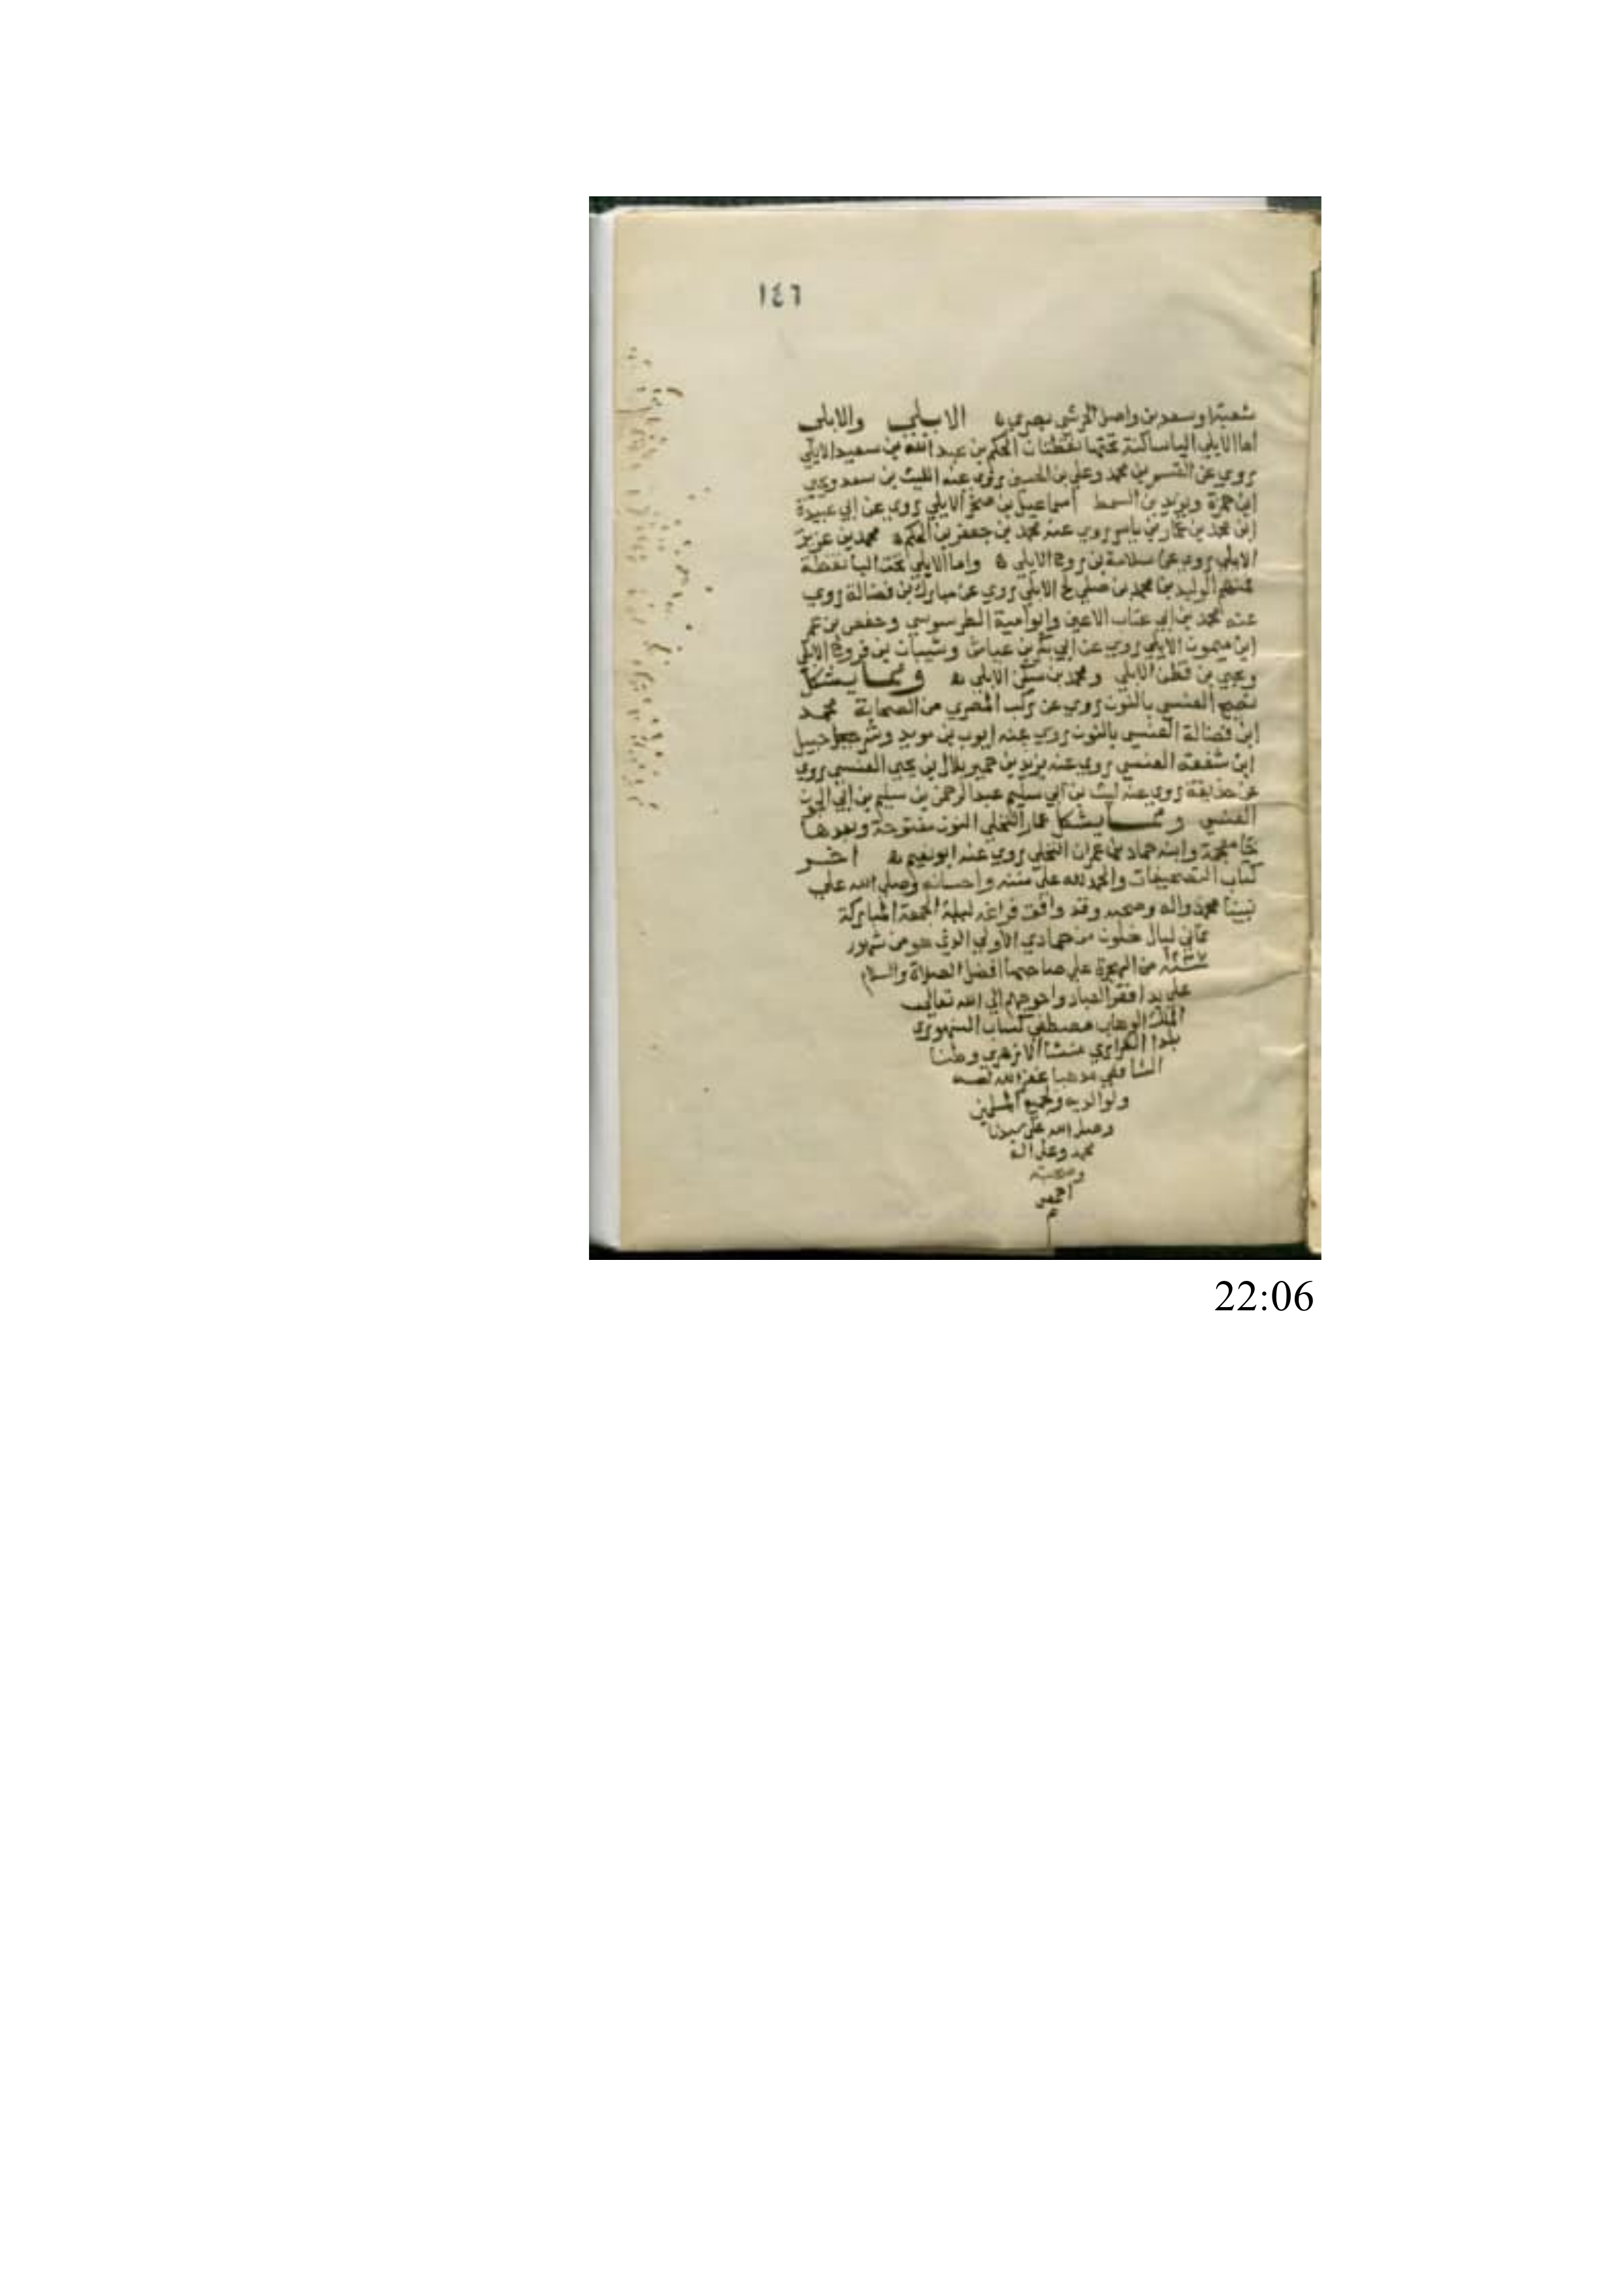 ١٤٦
شعبة وسعد بن واصل الحرشي بصري الايلي والابلي
اما الايلي اليا ساكنة تحتها نقطتان الحكم بن عبد الله بن سعيد الايلي
روي عن القسم بن محمد وعلي بن الحسين روي عنه الليث بن سعد ويحيي
ابن حمزة ويزيد بن السمط اسماعيل بن صخر الايلي روي عن ابي عبيدة
ابن محمد بن عمار بن ياسر روي عنه محمد بن جعفر بن الحكم محمد بن عزيز
الايلي روي عن سلامة بن روح الايلي واما الابلي تحت البا نقطة
فمنهم الوليد بن محمد بن صالح الابلي روي عن مبارك بن فضالة روي
عنه محمد بن ابي عتاب الاعين وابو امية الطرسوسي وحفص بن عمر
ابن ميمون الابلي روي عن ابي بكر بن عياش وشيبان بن فروخ الابلي
ويحيي بن قطن الابلي ومحمد بن الابلي ومما يشكل
نجيح العنسي بالنون روي عن ركب المصري من الصحابة محمد
ابن فضالة العنسي بالنون روي عنه ايوب بن سويد وشرحبيل
ابن شفعة العنسي روي عنه يزيد بن حمير بلال بن يحيي العنسي روي
عن حذيفة روي عنه ليث بن ابي سليم عبد الرحمن بن سليم بن ابي الجون
العنسي ومما يشكل عمار النخلي النون مفتوحة وبعدها
خا معجمة وابنه حماد بن عمران النخلي روي عنه ابو نعيم اخر
كتاب التصحيفات والحمد لله علي مننه واحسانه وصلي الله علي
نبينا محمد واله وصحبه وقد وافق فراغه ليلة الجمعة المباركة
ثماني ليال خلون من جمادي الاولي الذي هو من شهور
سنة من الهجرة علي صاحبها افضل الصلاة والسلام
علي يد افقر العباد واحوجهم الي الله تعالي
الملك الوهاب مصطفي كساب السنهوري
بلدا منشا الازهري وطنا
الشافعي مذهبا غفر الله له
ولوالديه ولجميع المسلمين
وصلي الله علي سيدنا
محمد وعلي اله
وصحبه
اجمعين
م
22:06